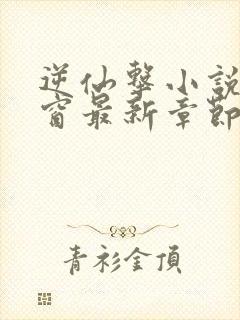 逆仙擊小說
窗最新章節
青衫金頂